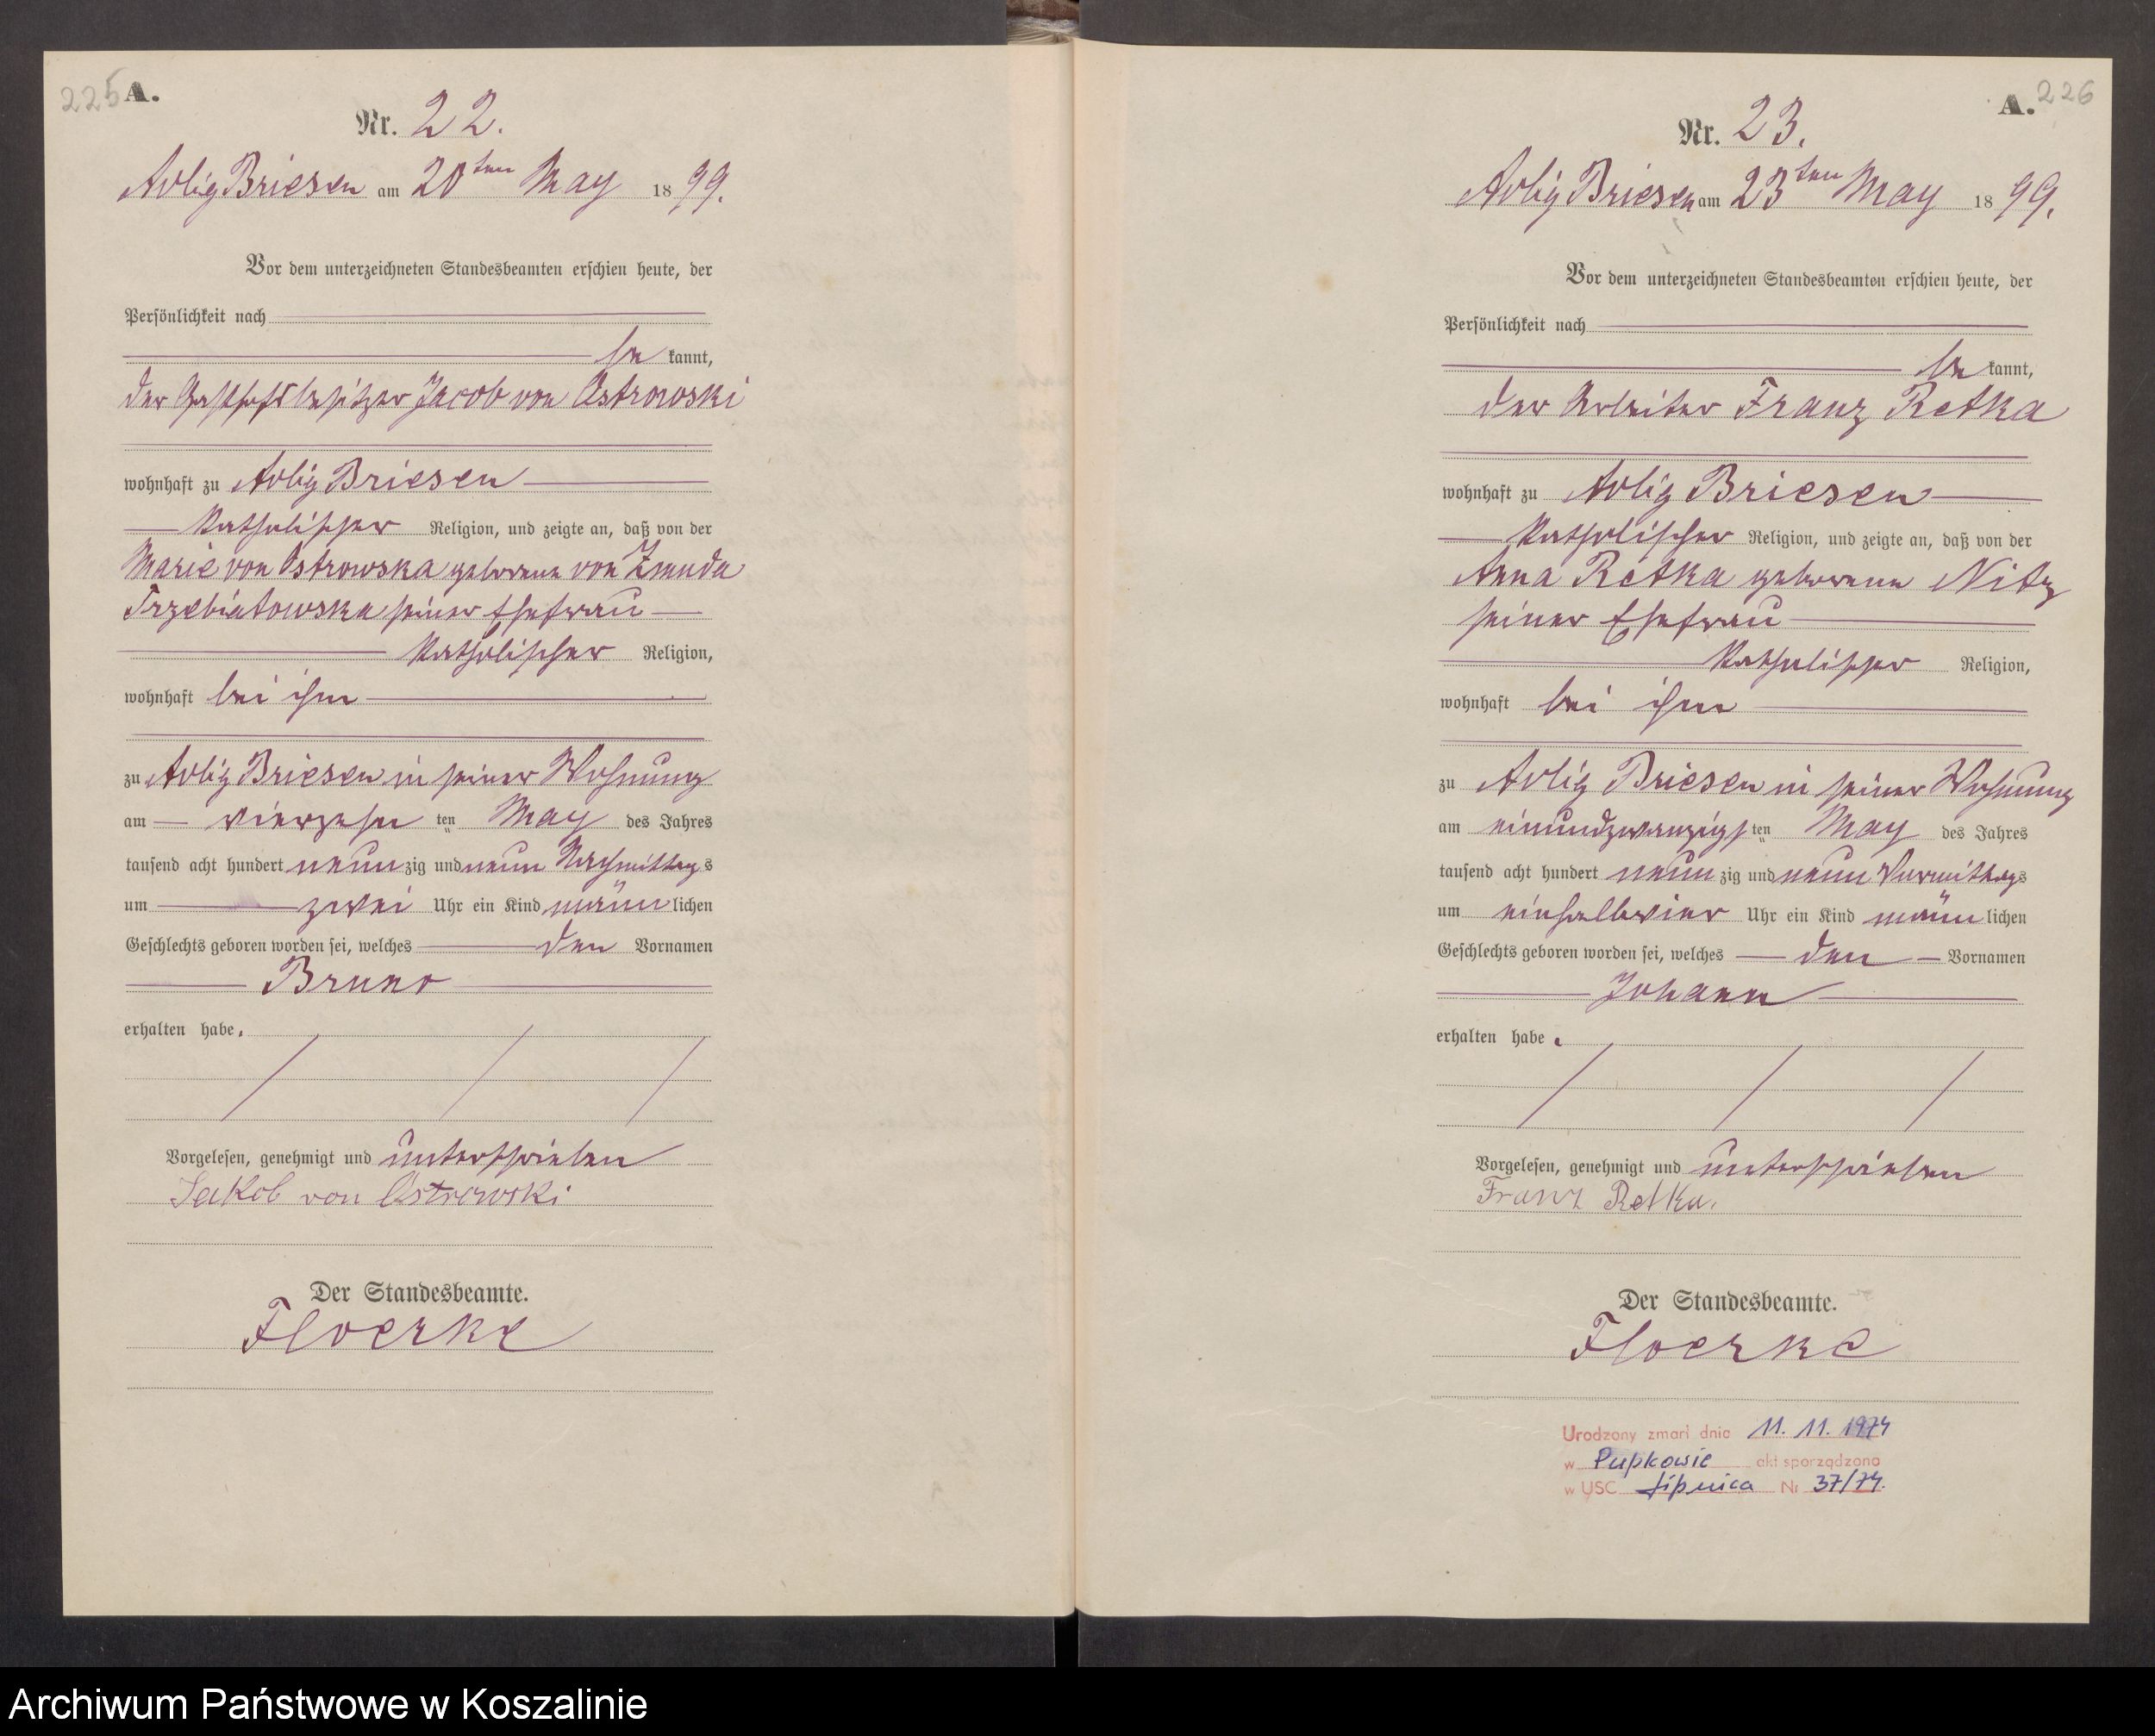 225 A.
Nr. 22.
Adlig Briesen am 20ten May 1899.
Vor dem unterzeichneten Standesbeamten erschien heute, der
Persönlichkeit nach
be kannt,
der Gasthofsbesitzer Jacob von Ostrowski
wohnhaft zu Adlig Briesen
katholischer Religion, und zeigte an, daß von der
Marie von Ostrowska geborene von Zmuda
Trzebiatowska seiner Ehefrau
katholischer Religion,
wohnhaft bei ihm
zu Adlig Briesen in seiner Wohnung
am vierzehn ten May des Jahres
tausend acht hundert neun zig und neun Nachmittags
um zwei Uhr ein Kind männ lichen
Geschlechts geboren worden sei, welches den Vornamen
Bruno
erhalten habe.
Vorgelesen, genehmigt und unterschrieben
Jakob von Ostrowski
Der Standesbeamte.
Floerke
A. 226
Nr. 23.
Adlig Briesen am 23ten May 1899.
Vor dem unterzeichneten Standesbeamten erschien heute, der
Persönlichkeit nach
be kannt,
der Arbeiter Franz Retka
wohnhaft zu Adlig Briesen
katholischer Religion, und zeigte an, daß von der
Anna Retka geborene Nitz
seiner Ehefrau
katholischer Religion,
wohnhaft bei ihm
zu Adlig Briesen in seiner Wohnung
am einundzwanzigs ten May des Jahres
tausend acht hundert neun zig und neun Vormittags
um einhalbvier Uhr ein Kind männ lichen
Geschlechts geboren worden sei, welches den Vornamen
Johann
erhalten habe.
Vorgelesen, genehmigt und unterschrieben
Franz Retka.
Der Standesbeamte.
Floerke
Urodzony zmarł dnia 11. 11. 1974
w Pupkowie akt sporządzono
w USC Lipnica Nr 37/74.
Archiwum Państwowe w Koszalinie